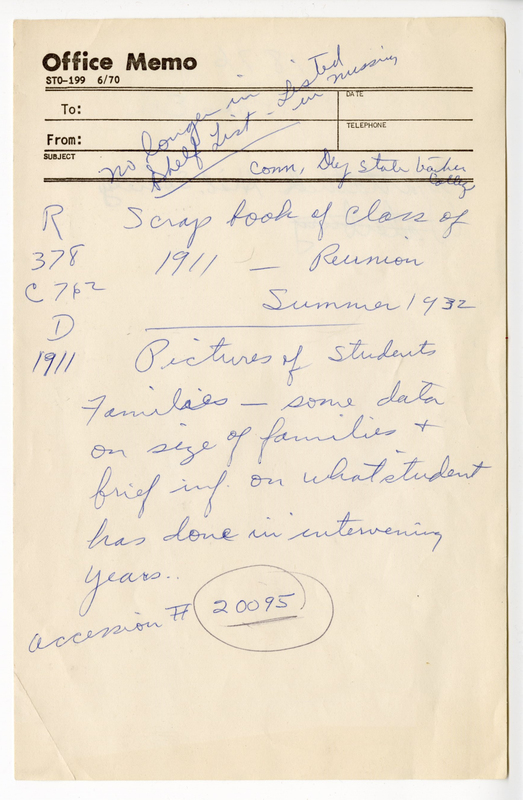 Office Memo
STO-199 6/70
To:
DATE
From:
TELEPHONE
SUBJECT
No longer in
Shelf List - Listed
in missing
Conn, Dby State
College
R
378
C762
D
1911
Scrap book of Class of
1911 — Reunion
Summer 1932
Pictures of Students
Families — some data
on size of families +
brief inf. on what student
has done in intervening
years..
accession # 20095